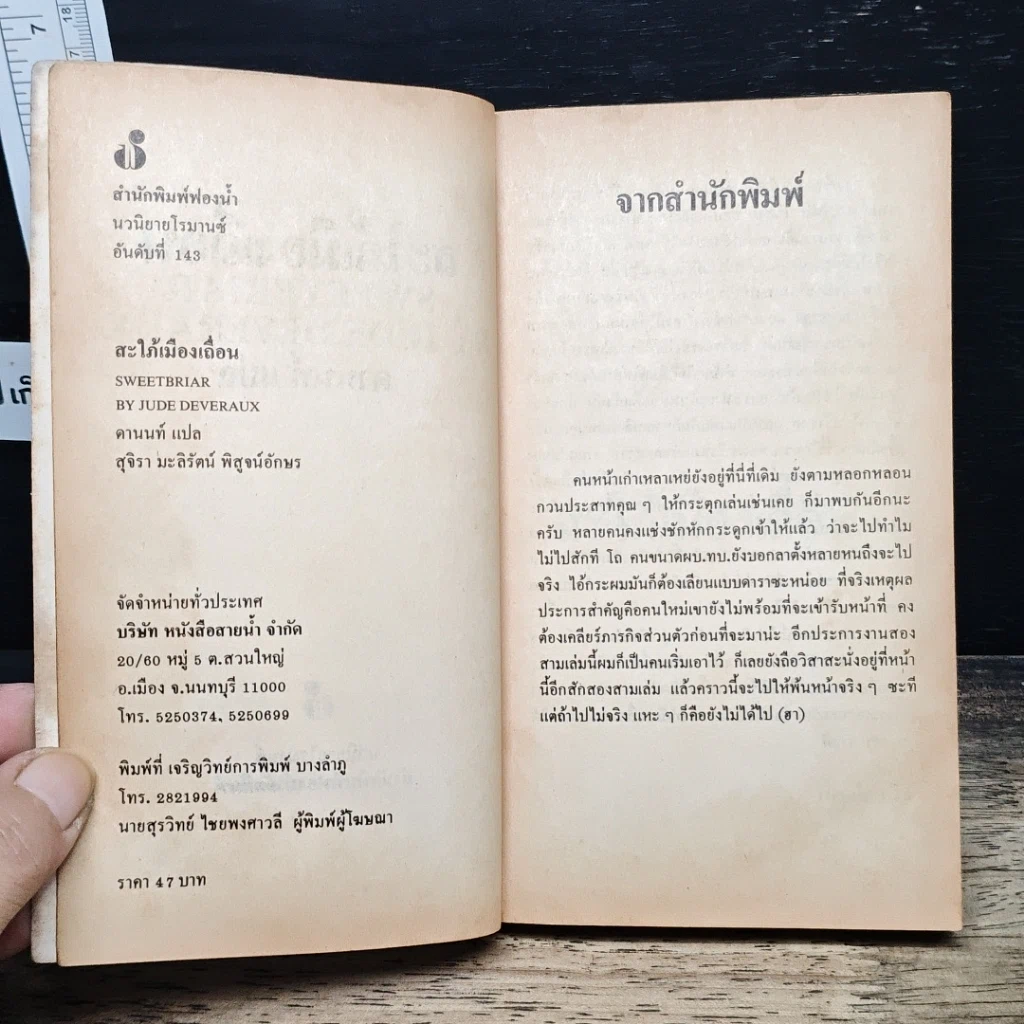 7
18
17
เก็
สำนักพิมพ์ฟองน้ำ
นวนิยายโรมานซ์
อันดับที่ 143
สะใภ้เมืองเถื่อน
SWEETBRIAR
BY JUDE DEVERAUX
ดานนท์ แปล
สุจิรา มะลิรัตน์ พิสูจน์อักษร
จัดจำหน่ายทั่วประเทศ
บริษัท หนังสือสายน้ำ จำกัด
20/60 หมู่ 5 ต.สวนใหญ่
อ.เมือง จ.นนทบุรี 11000
โทร. 5250374, 5250699
พิมพ์ที่ เจริญวิทย์การพิมพ์ บางลำภู
โทร. 2821994
นายสุรวิทย์ ไชยพงศาวลี ผู้พิมพ์ผู้โฆษณา
ราคา 47 บาท
จากสำนักพิมพ์
คนหน้าเก่าเหลาเหย่ยังอยู่ที่นี่ที่เดิม ยังตามหลอกหลอน
กวนประสาทคุณ ๆ ให้กระตุกเล่นเช่นเคย ก็มาพบกันอีกนะ
ครับ หลายคนคงแช่งชักหักกระดูกเข้าให้แล้ว ว่าจะไปทำไม
ไม่ไปสักที โถ คนขนาดผบ.ทบ.ยังบอกลาตั้งหลายหนถึงจะไป
จริง ไอ้กระผมมันก็ต้องเลียนแบบดาราซะหน่อย ที่จริงเหตุผล
ประการสำคัญคือคนใหม่เขายังไม่พร้อมที่จะเข้ารับหน้าที่ คง
ต้องเคลียร์ภารกิจส่วนตัวก่อนที่จะมาน่ะ อีกประการงานสอง
สามเล่มนี้ผมก็เป็นคนเริ่มเอาไว้ ก็เลยยังถือวิสาสะนั่งอยู่ที่หน้า
นี้อีกสักสองสามเล่ม แล้วคราวนี้จะไปให้พ้นหน้าจริง ๆ ซะที
แต่ถ้าไปไม่จริง แหะ ๆ ก็คือยังไม่ได้ไป (ฮา)